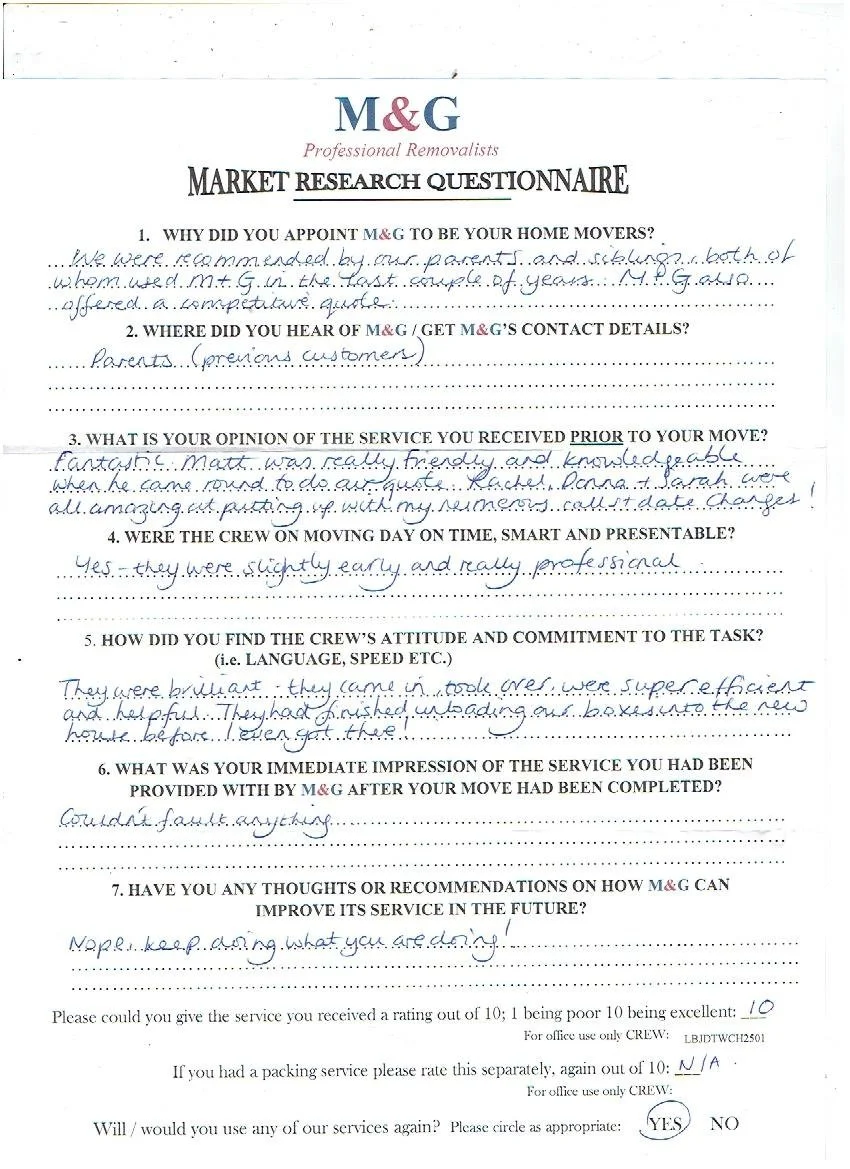 M&G
Professional Removalists
MARKET RESEARCH QUESTIONNAIRE
1. WHY DID YOU APPOINT M&G TO BE YOUR HOME MOVERS?
We were recommended by our parents and siblings, both of
whom used M+G in the last couple of years. M+G also
offered a competitive quote.
2. WHERE DID YOU HEAR OF M&G / GET M&G'S CONTACT DETAILS?
Parents (previous customers)
3. WHAT IS YOUR OPINION OF THE SERVICE YOU RECEIVED PRIOR TO YOUR MOVE?
Fantastic. Matt was really friendly and knowledgeable
when he came round to do our quote. Rachel, Donna + Sarah were
all amazing at putting up with my numerous calls + date changes!
4. WERE THE CREW ON MOVING DAY ON TIME, SMART AND PRESENTABLE?
Yes - they were slightly early and really professional
5. HOW DID YOU FIND THE CREW'S ATTITUDE AND COMMITMENT TO THE TASK?
(i.e. LANGUAGE, SPEED ETC.)
They were brilliant - they came in, took over, were super efficient
and helpful. They had finished unloading our boxes into the new
house before I even got there!
6. WHAT WAS YOUR IMMEDIATE IMPRESSION OF THE SERVICE YOU HAD BEEN
PROVIDED WITH BY M&G AFTER YOUR MOVE HAD BEEN COMPLETED?
Couldn't fault anything
7. HAVE YOU ANY THOUGHTS OR RECOMMENDATIONS ON HOW M&G CAN
IMPROVE ITS SERVICE IN THE FUTURE?
Nope, keep doing what you are doing!
Please could you give the service you received a rating out of 10; 1 being poor 10 being excellent: 10
For office use only CREW: LBJDTWCH2501
If you had a packing service please rate this separately, again out of 10: N/A
For office use only CREW:
Will / would you use any of our services again? Please circle as appropriate: YES NO